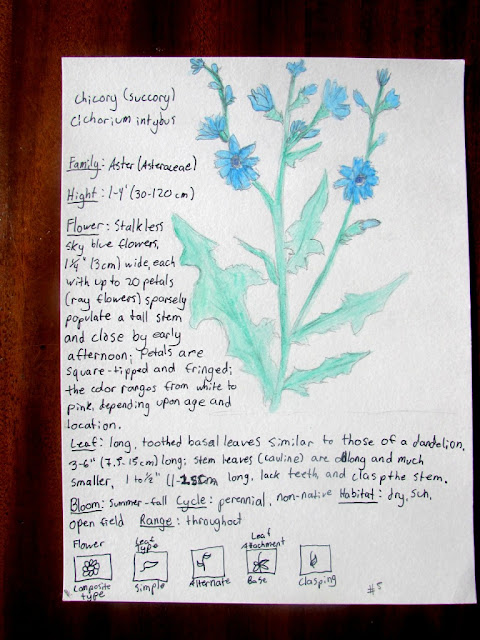 Chicory (succory)
Cichorium intybus
Family: Aster (Asteraceae)
Hight: 1-4' (30-120 cm)
Flower: Stalkless
sky blue flowers,
1¼" (3cm) wide, each
with up to 20 petals
(ray flowers) sparsely
populate a tall stem
and close by early
afternoon; Petals are
square-tipped and fringed;
the color ranges from white to
pink, depending upon age and
location.
Leaf: long, toothed basal leaves similar to those of a dandelion,
3-6" (7.5-15cm) long; stem leaves (cauline) are oblong and much
smaller, 1 to ½" long, lack teeth, and clasp the stem.
Bloom: Summer-fall Cycle: perennial, non-native Habitat: dry, sun,
open field Range: throughout
Flower
Leaf Type
Leaf Attachment
Composite type
Simple
Alternate
Base
Clasping